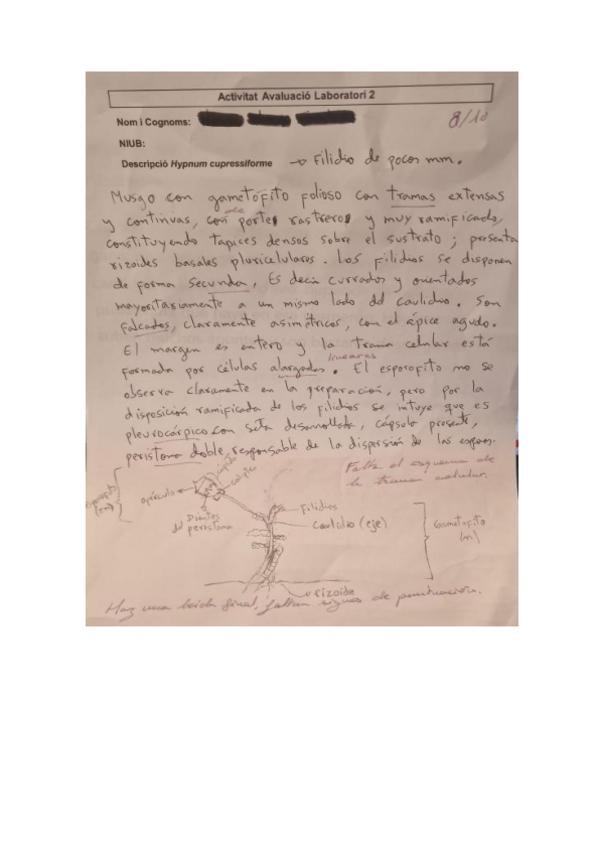 Activitat Avaluació Laboratori 2
Nom i Cognoms:
8/10
NIUB:
Descripció Hypnum cupressiforme → Filidio de pocos mm.
Musgo con gametófito folioso con tramas extensas
y continuas, con de porte rastrero y muy ramificando,
constituyendo tapices densos sobre el sustrato; presenta
rizoides basales pluricelulares. Los filidios se disponen
de forma secunda, Es decir curvados y orientados
mayoritariamente a un mismo lado del caulidio. Son
falcados, claramente asimétricos, con el ápice agudo.
El margen es entero y la trama celular está
lineares
formada por células alargadas. El esporofito no se
observa claramente en la preparación, pero por la
disposición ramificada de los filidios se intuye que es
pleurocárpico con seta desarrollada, cápsula presente,
peristoma doble, responsable de la dispersión de las esporas.
Falta el esquema de
la trama celular.
opérculo
Dientes
del peristoma
Filidios
Caulidio (eje)
Gametofito
(n)
rizoide
Haz una leida final, faltan signos de puntuación.